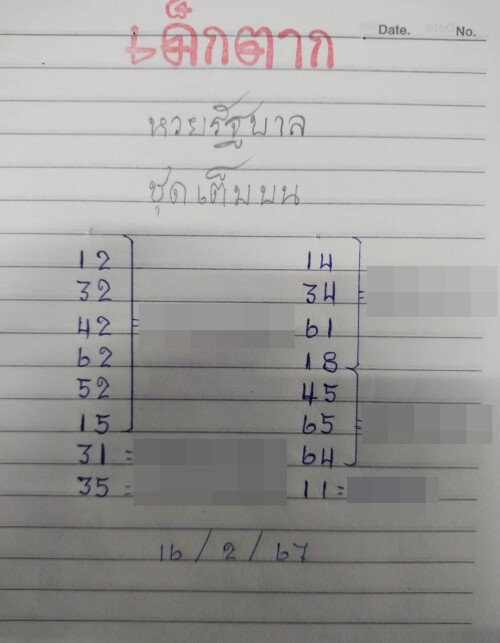 Date. No.
เด็กตาก
หวยรัฐบาล
ชุดเต็มบน
12 14
32 34 =
42 = 61
62 18
52 45
15 65 =
31 = 64
35 = 11 =
16/2/67